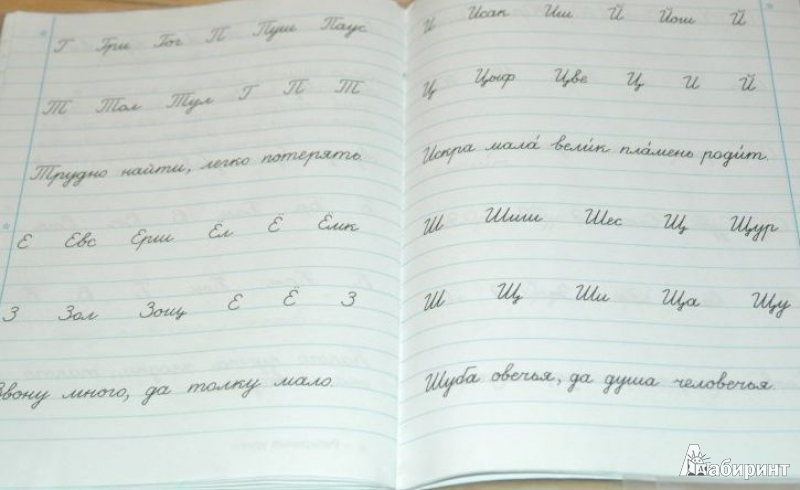 Г Гри Гог П Пуш Паус
Т Тол Тул Г П Т
Трудно найти, легко потерять.
Е Евс Ерш Ел Е Ёмк
З Зол Зощ Е Ё З
Звону много, да толку мало.
И Исак Иш Й Йош Й
Ц Цыф Цве Ц И Й
Искра мала́ вели́к пла́мень роди́т.
Ш Шиш Шес Щ Щур
Ш Щ Ши Ща Щу
Шуба овечья, да душа человечья.
Лабиринт